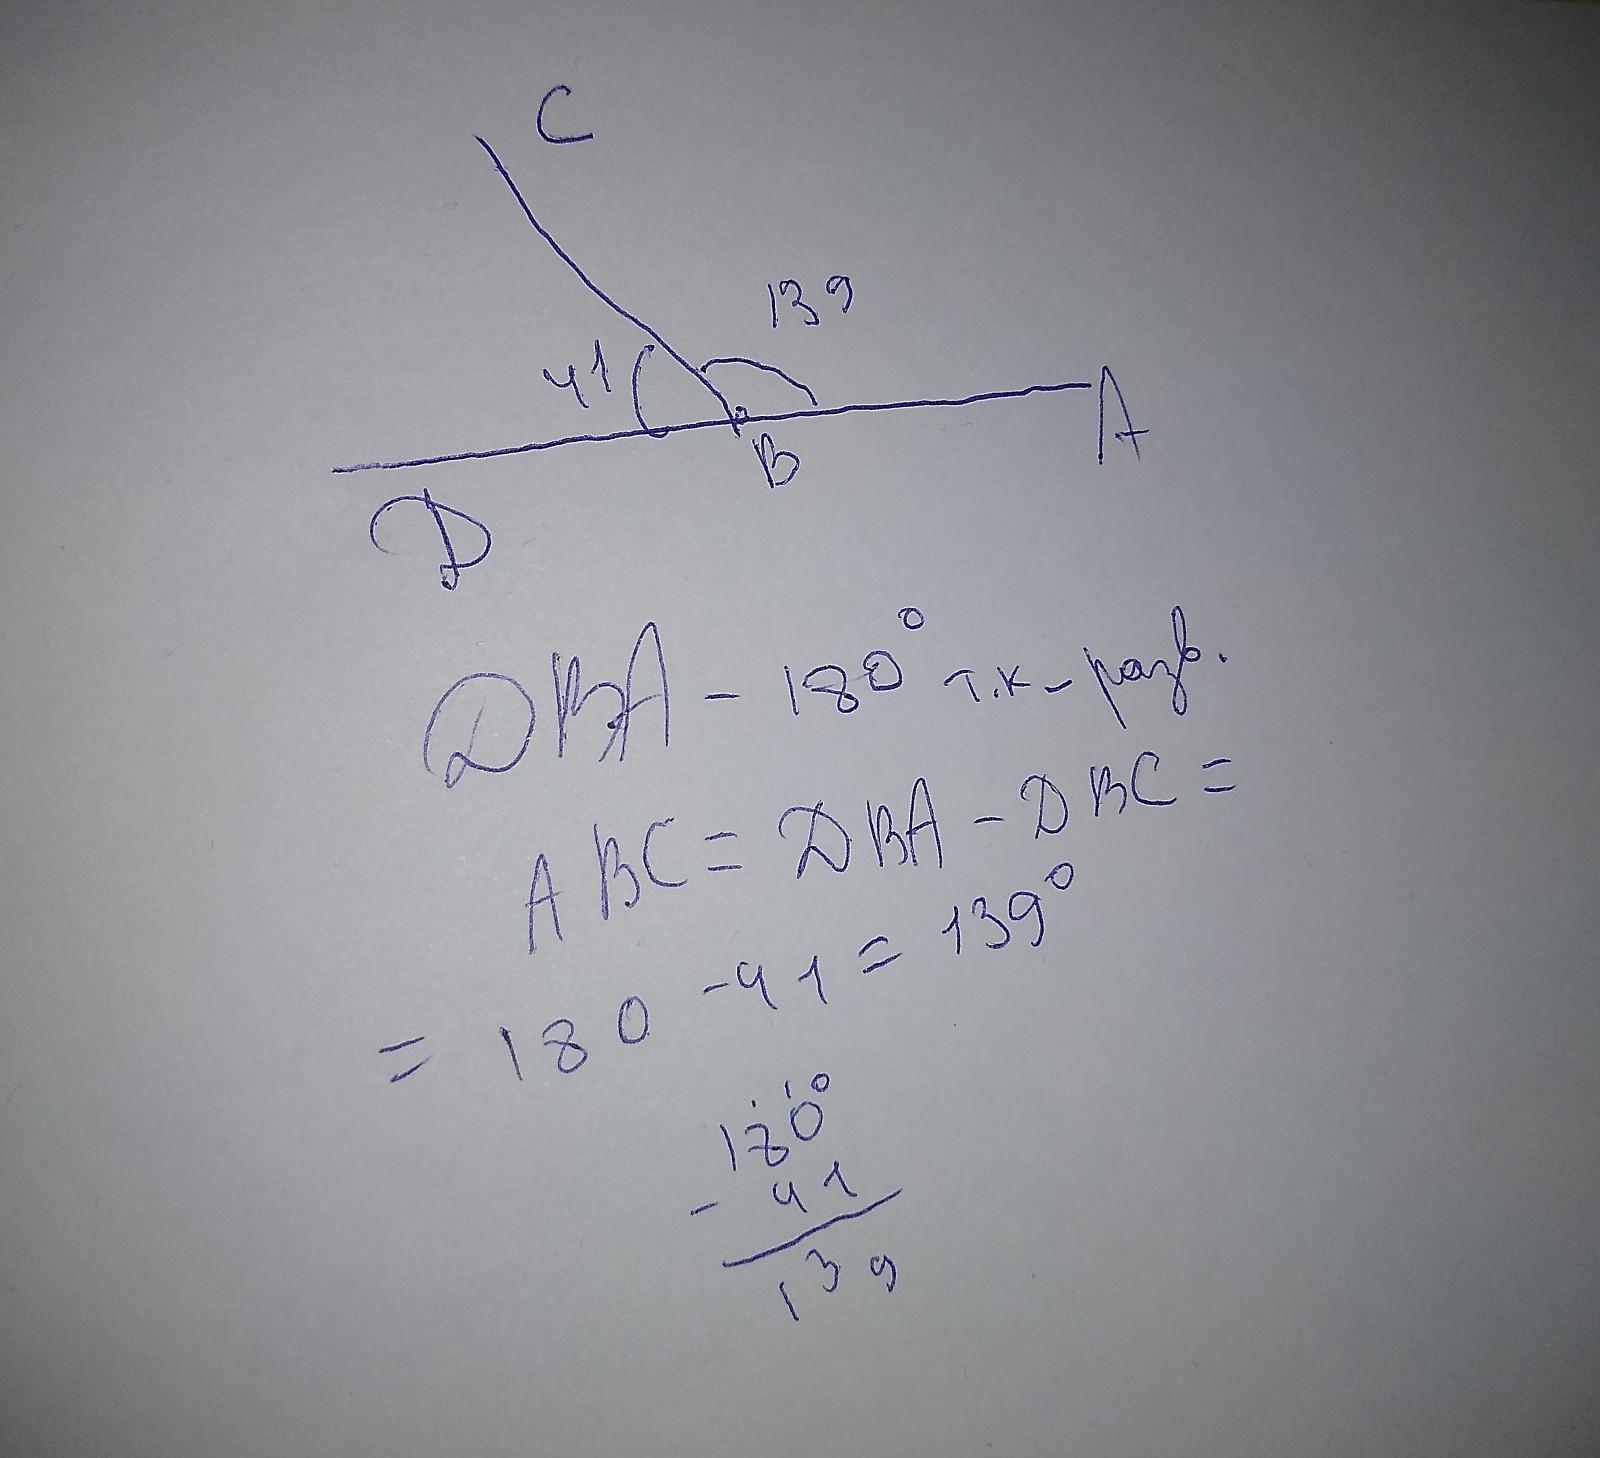 C
139
41
A
B
D
DBA - 180° т.к- разв.
ABC = DBA - DBC =
= 180 - 41 = 139°
180°
- 41
139